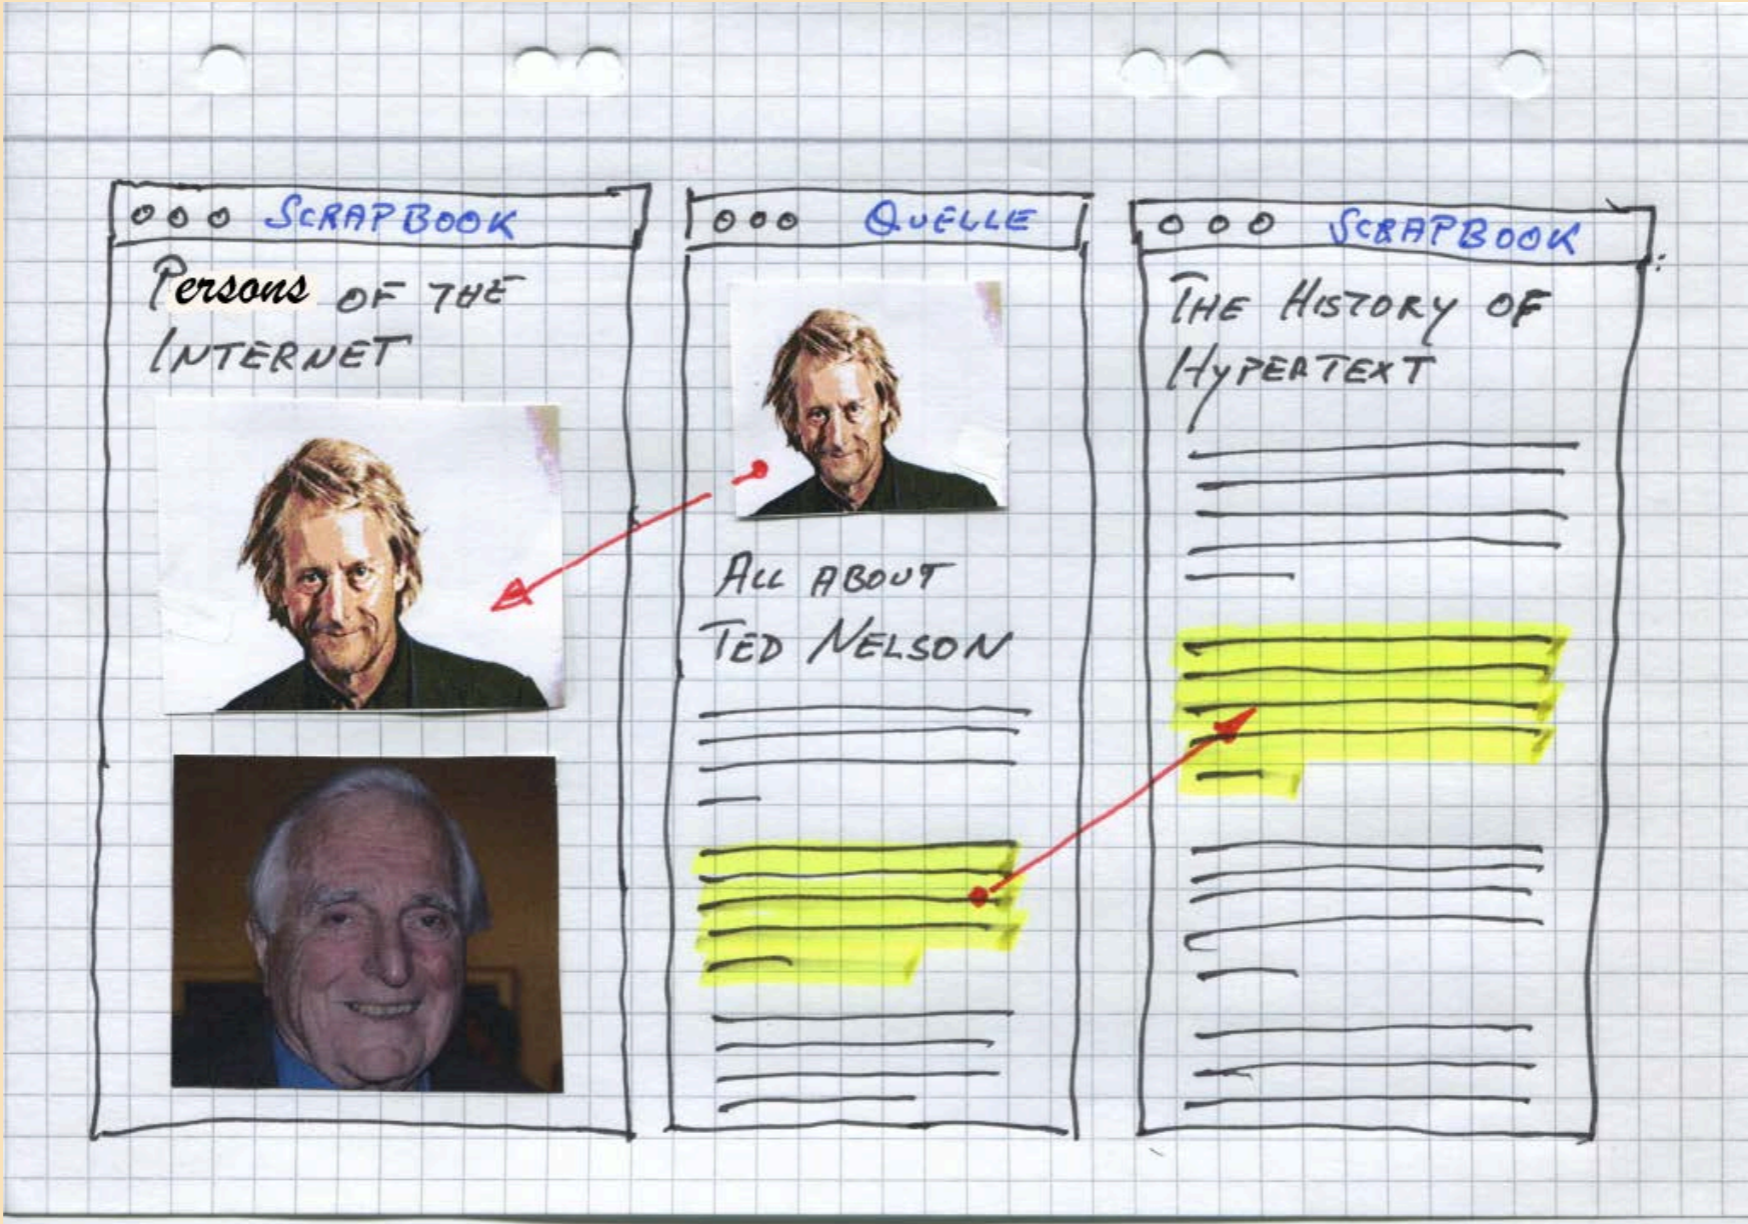 SCRAPBOOK
Persons OF THE
INTERNET
QUELLE
ALL ABOUT
TED NELSON
SCRAPBOOK
THE HISTORY OF
HYPERTEXT